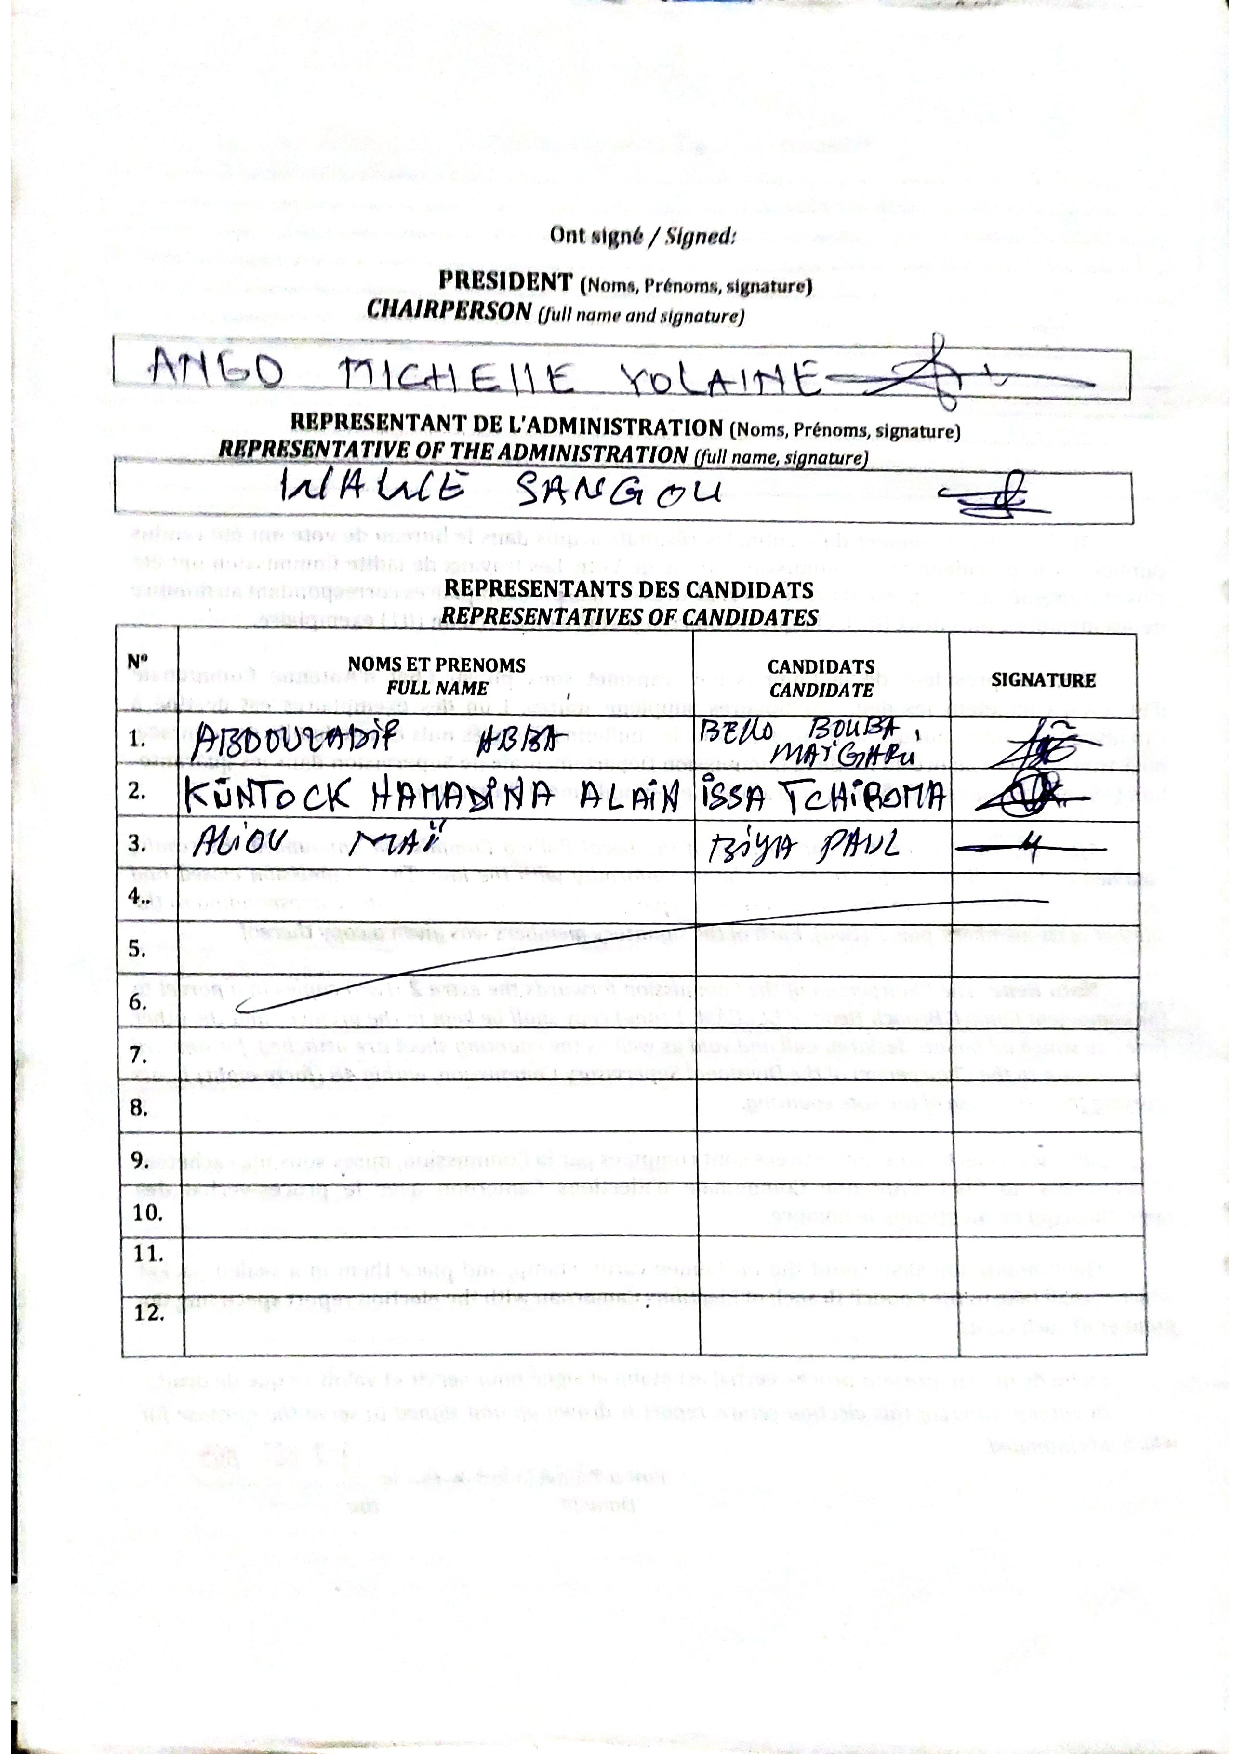 Ont signé / Signed:
PRESIDENT (Noms, Prénoms, signature)
CHAIRPERSON (full name and signature)
ANGO MICHELLE YOLAINE
REPRESENTANT DE L'ADMINISTRATION (Noms, Prénoms, signature)
REPRESENTATIVE OF THE ADMINISTRATION (full name, signature)
SANGOU
REPRESENTANTS DES CANDIDATS
REPRESENTATIVES OF CANDIDATES
N° NOMS ET PRENOMS CANDIDATS SIGNATURE
FULL NAME CANDIDATE
1. ABDOULADIF ABBA BELLO BOUBA
MAÏGARI
2. KÜNTOCK HAMADINA ALAIN ISSA TCHIROMA
3. ALIOU MAÏ BIYA PAUL
4..
5.
6.
7.
8.
9.
10.
11.
12.